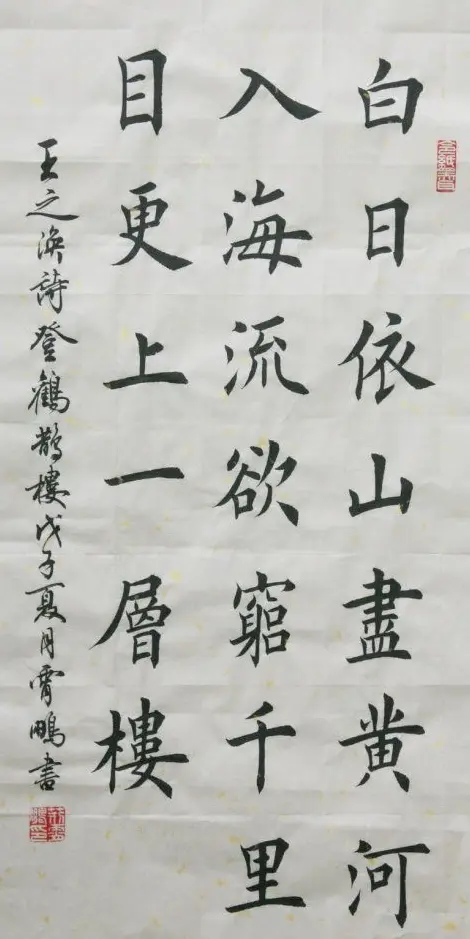 白日依山盡黄河
入海流欲窮千里
目更上一層樓
王之涣詩登鶴鵲樓戊子夏月霄鵬書